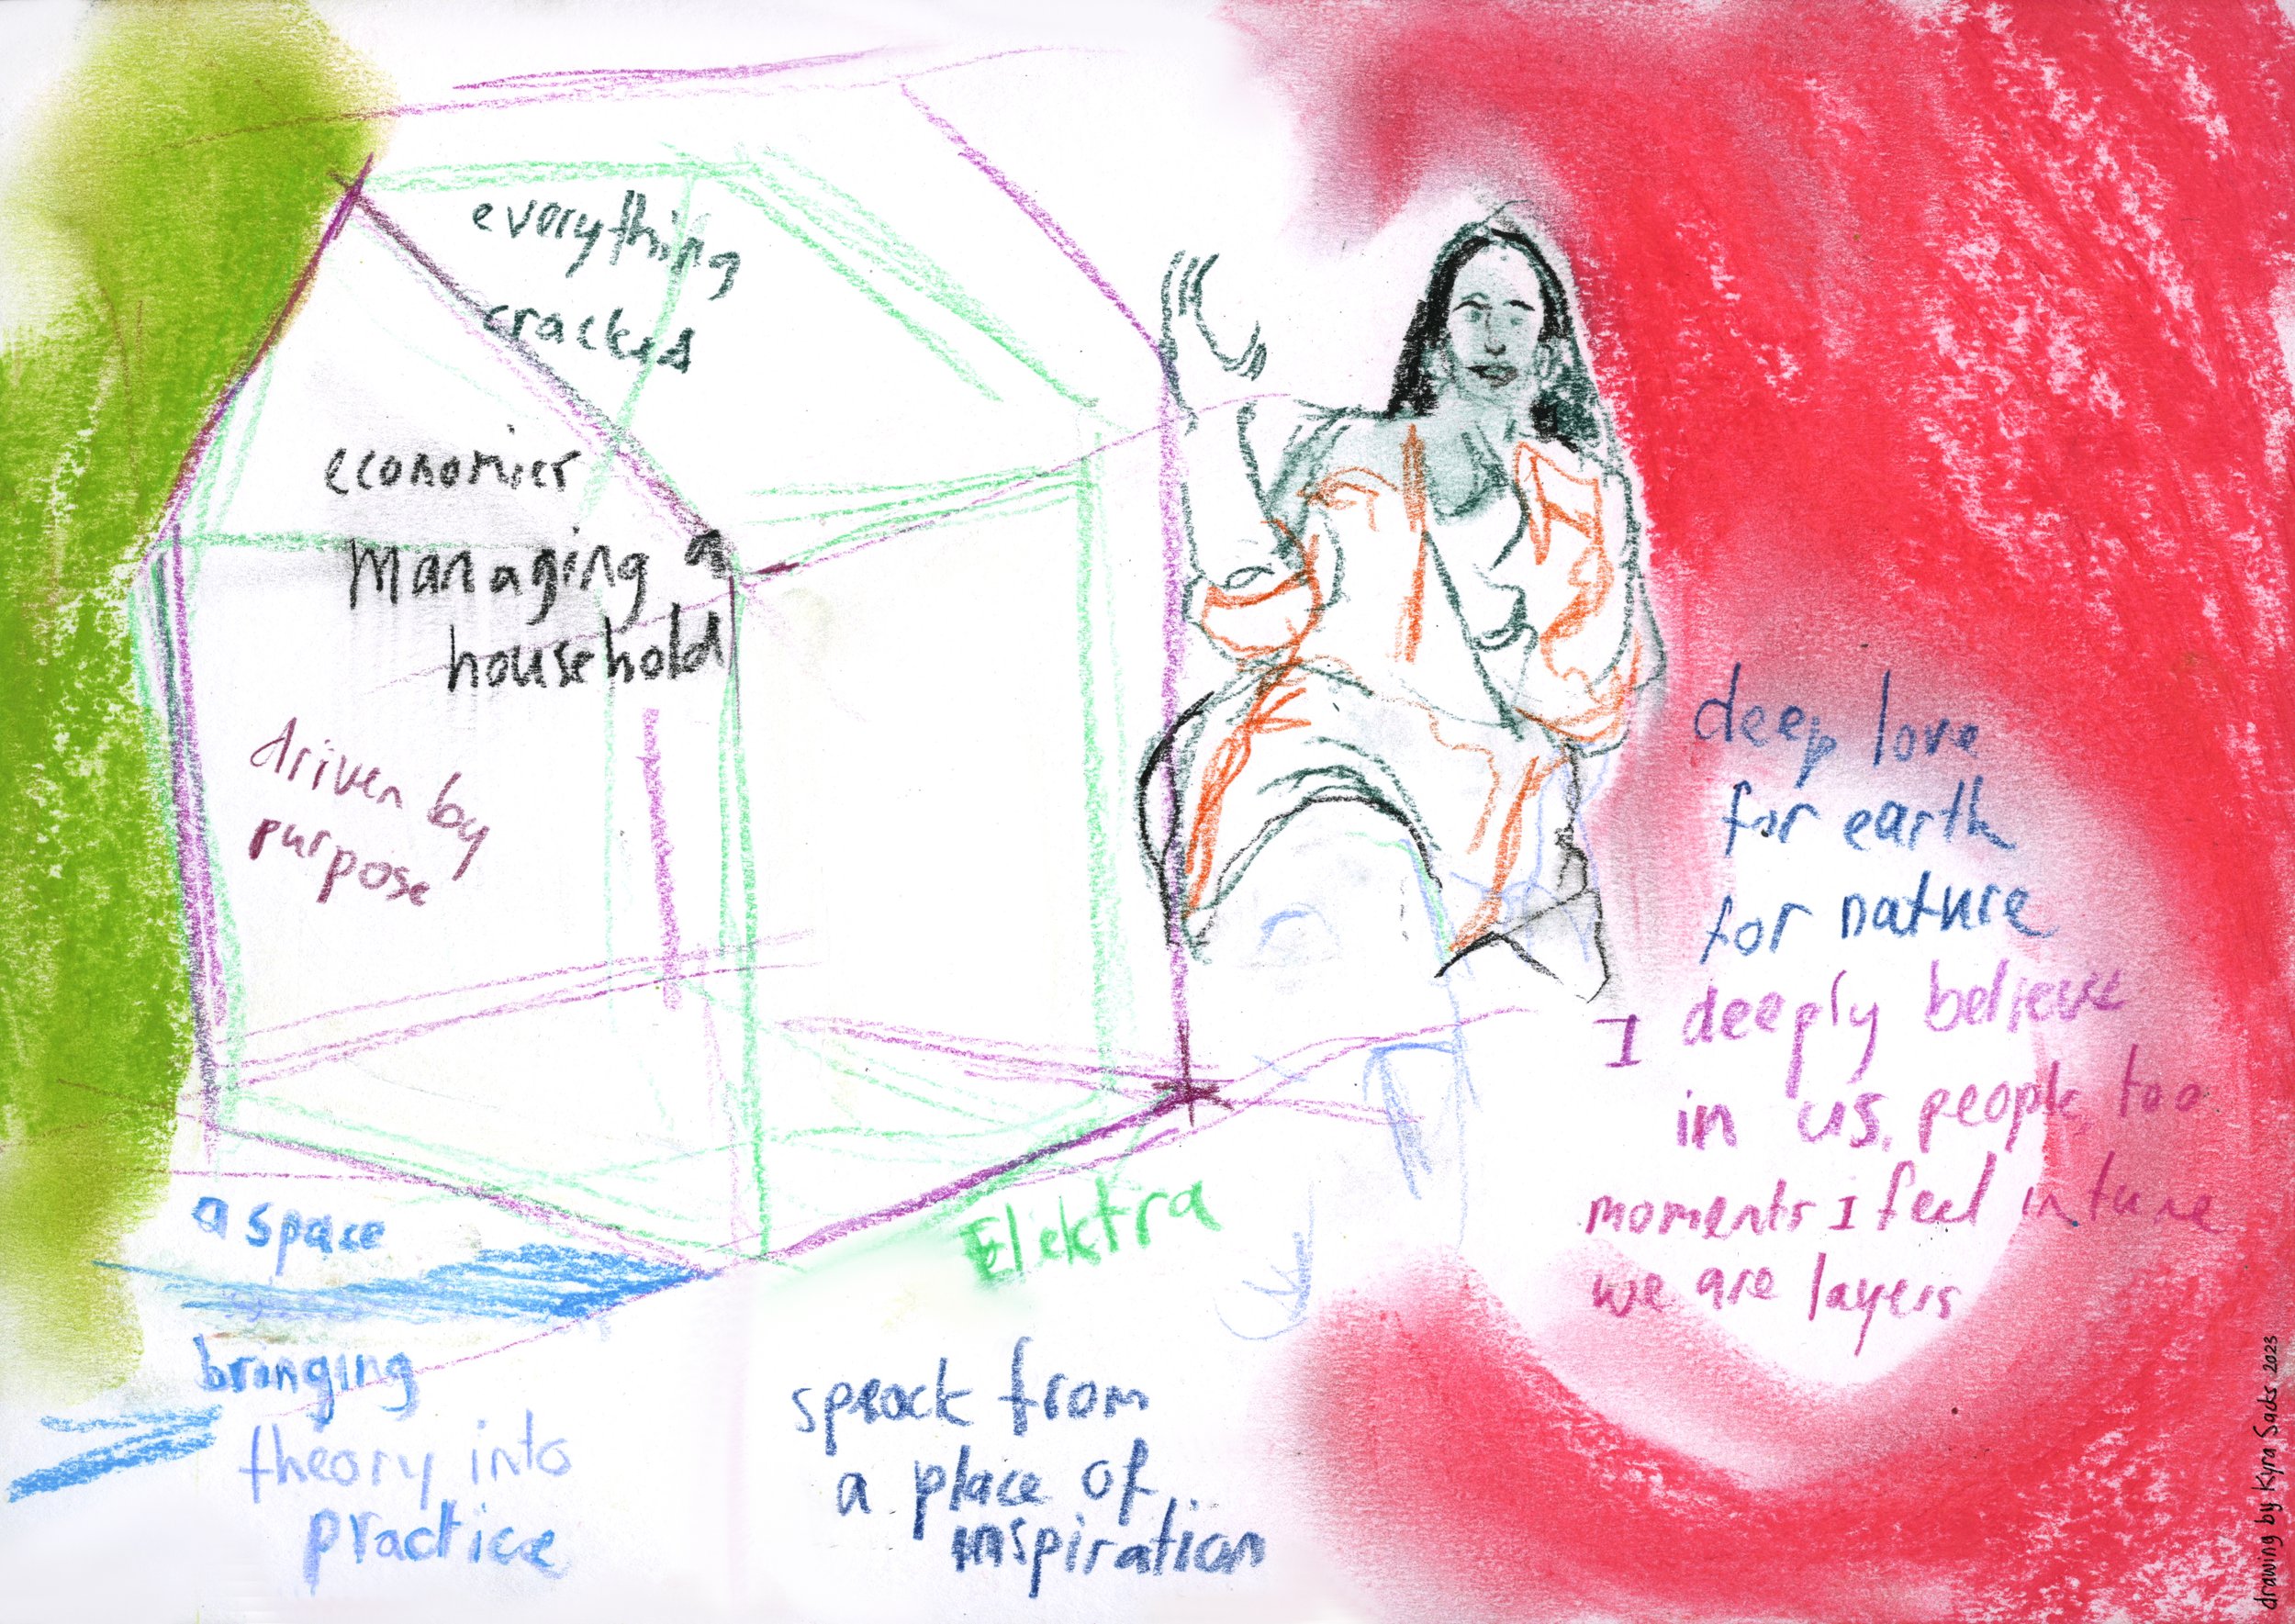 everything
cracked
economics
managing a
household
driven by
purpose
a space
bringing
theory into
practice
Elektra
speack from
a place of
inspiration
deep love
for earth
for nature
I deeply believe
in us, people too
moments I feel in tune
we are layers
drawing by Kyra Sacks 2023